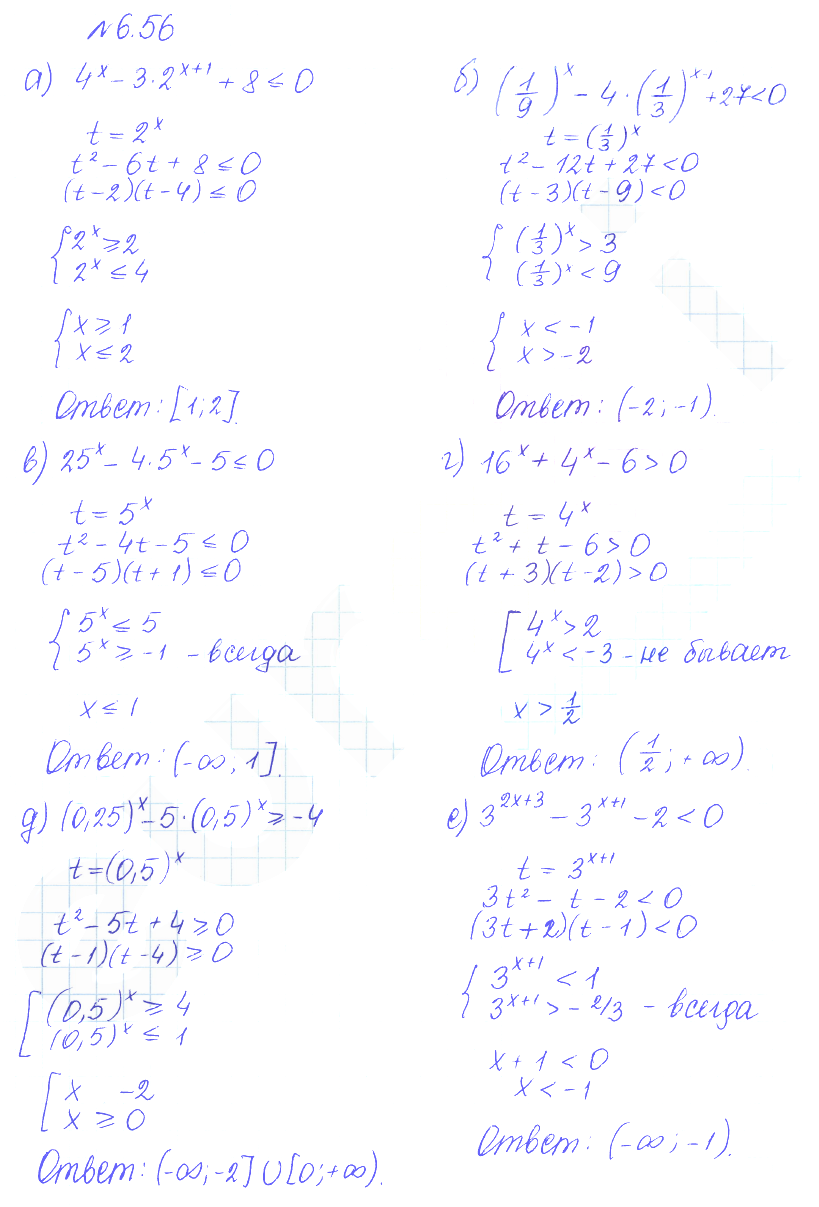 №6.56
а) 4^x - 3·2^{x+1} + 8 ≤ 0
t = 2^x
t² - 6t + 8 ≤ 0
(t-2)(t-4) ≤ 0
{ 2^x ≥ 2
2^x ≤ 4
{ x ≥ 1
x ≤ 2
Ответ: [1; 2].
б) (1/9)^x - 4·(1/3)^{x-1} + 27 < 0
t = (1/3)^x
t² - 12t + 27 < 0
(t-3)(t-9) < 0
{ (1/3)^x > 3
(1/3)^x < 9
{ x < -1
x > -2
Ответ: (-2; -1).
в) 25^x - 4·5^x - 5 ≤ 0
t = 5^x
t² - 4t - 5 ≤ 0
(t-5)(t+1) ≤ 0
{ 5^x ≤ 5
5^x ≥ -1 - всегда
x ≤ 1
Ответ: (-∞; 1].
г) 16^x + 4^x - 6 > 0
t = 4^x
t² + t - 6 > 0
(t + 3)(t - 2) > 0
[ 4^x > 2
4^x < -3 - не бывает
x > 1/2
Ответ: (1/2; +∞).
д) (0,25)^x - 5·(0,5)^x ≥ -4
t = (0,5)^x
t² - 5t + 4 ≥ 0
(t-1)(t-4) ≥ 0
[ (0,5)^x ≥ 4
(0,5)^x ≤ 1
[ x -2
x ≥ 0
Ответ: (-∞; -2] ∪ [0; +∞).
е) 3^{2x+3} - 3^{x+1} - 2 < 0
t = 3^{x+1}
3t² - t - 2 < 0
(3t+2)(t-1) < 0
{ 3^{x+1} < 1
3^{x+1} > -2/3 - всегда
x + 1 < 0
x < -1
Ответ: (-∞; -1).